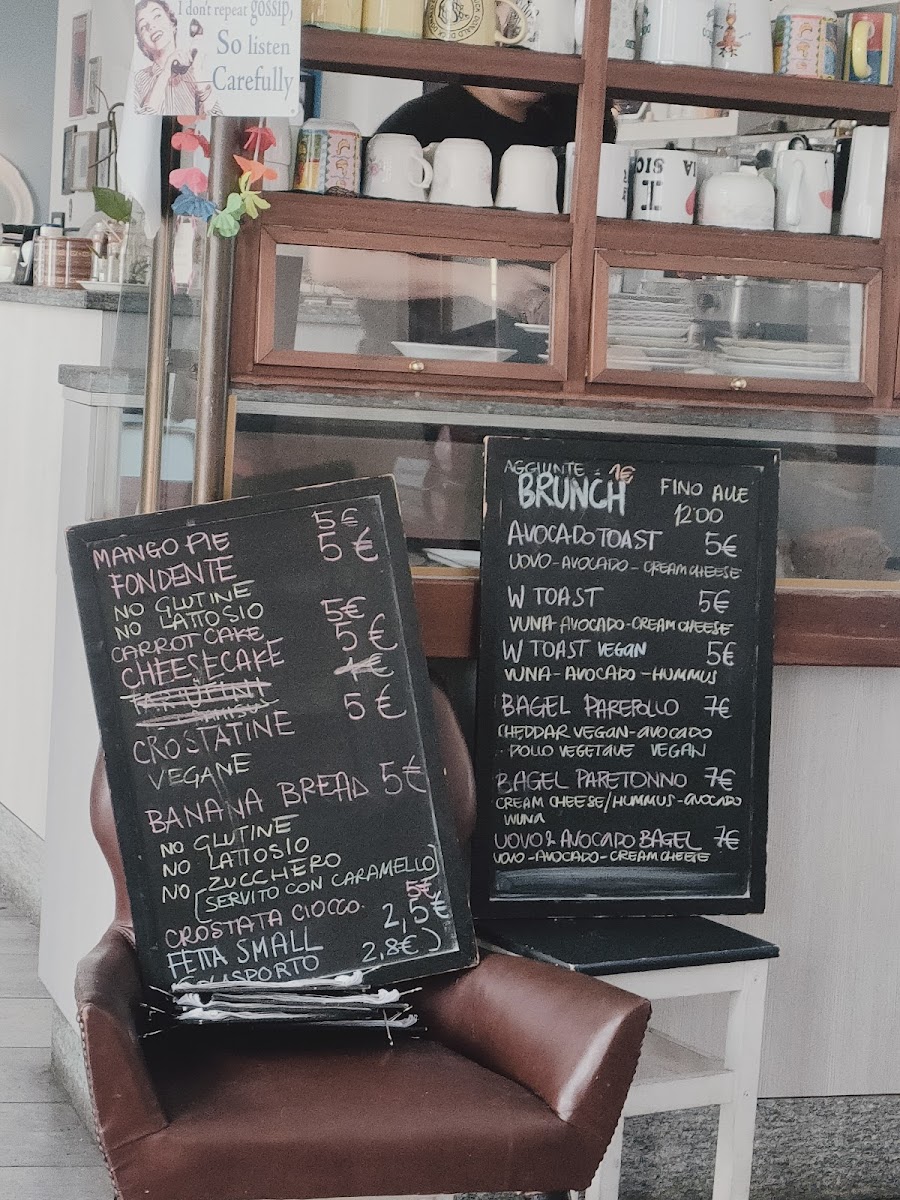 I don't repeat gossip,
So listen
Carefully
MANGO PIE 5€
FONDENTE 5€
NO GLUTINE
NO LATTOSIO
CARROT CAKE 5€
CHEESECAKE 5€
TARTUFINI 1€
CROSTATINE 5€
VEGANE
BANANA BREAD 5€
NO GLUTINE
NO LATTOSIO
NO ZUCCHERO
(SERVITO CON CARAMELLO)
CROSTATA CIOCCO. 5€
FETTA SMALL 2,5€
2,8€)
AGGIUNTE - 1€
BRUNCH FINO ALLE
12:00
AVOCADO TOAST 5€
UOVO-AVOCADO-CREAM CHEESE
W TOAST 5€
VUNA-AVOCADO-CREAM CHEESE
W TOAST VEGAN 5€
VUNA-AVOCADO-HUMMUS
BAGEL PAREPOLLO 7€
CHEDDAR VEGAN-AVOCADO
POLLO VEGETAVE VEGAN
BAGEL PARETONNO 7€
CREAM CHEESE/HUMMUS-AVOCADO
VUNA
UOVO & AVOCADO BAGEL 7€
UOVO-AVOCADO-CREAM CHEESE